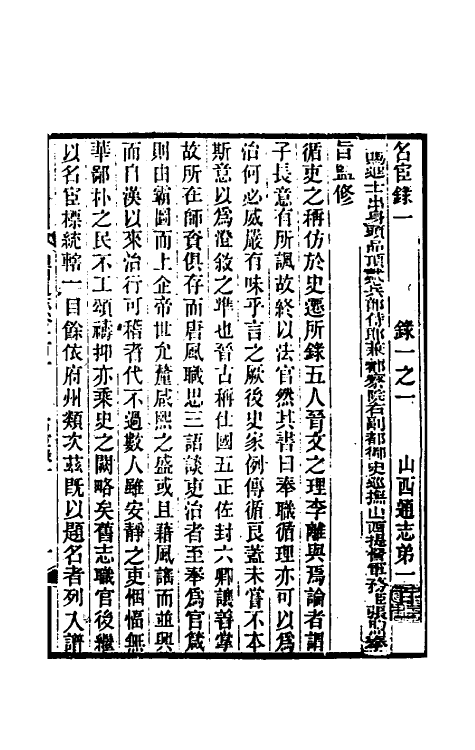 名宦錄一 錄一之一 山西通志第一
進士出身頭品頂戴兵部侍郎兼都察院右副都御史巡撫山西提督軍務張煦奉
旨監修
循吏之稱仿於史遷所錄五人晉文之理李離與焉論者謂
子長意有所諷故終以法官然其書曰奉職循理亦可以為
治何必威嚴有味乎言之厥後史家例傳循良蓋未嘗不本
斯意以為澄敘之準也晉古稱仕國五正佐封六卿讓善掌
故所在師資俱存而唐風職思三語談吏治者至奉為官箴
則由霸圖而上企帝世允釐咸熙之盛或且藉風謠而並興
而自漢以來治行可稽者代不過數人雖安靜之吏悃愊無
華鄙朴之民不工頌禱抑亦乘史之闕略矣舊志職官後繼
以名宦標統轄一目餘依府州類次茲既以題名者列入譜